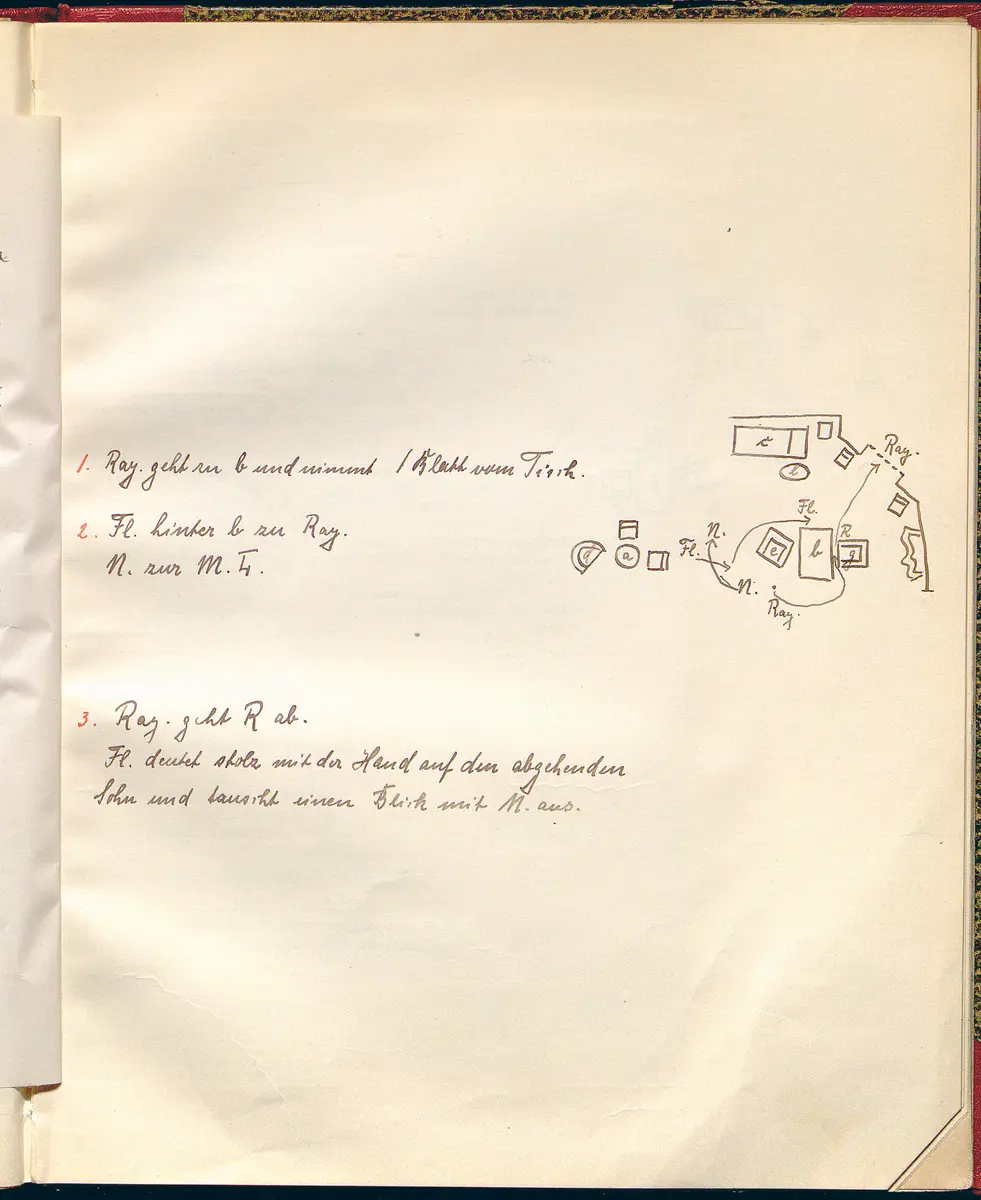 1. Ray. geht zu b und nimmt 1 Blatt vom Tisch.
2. Fl. hinter b zu Ray.
N. zur M. Tr.
3. Ray. geht R ab.
Fl. deutet stolz mit der Hand auf den abgehenden
Sohn und tauscht einen Blick mit N. aus.
Ray.
c
l
Fl.
N.
R
d
a
Fl.
e
b
g
N.
Ray.